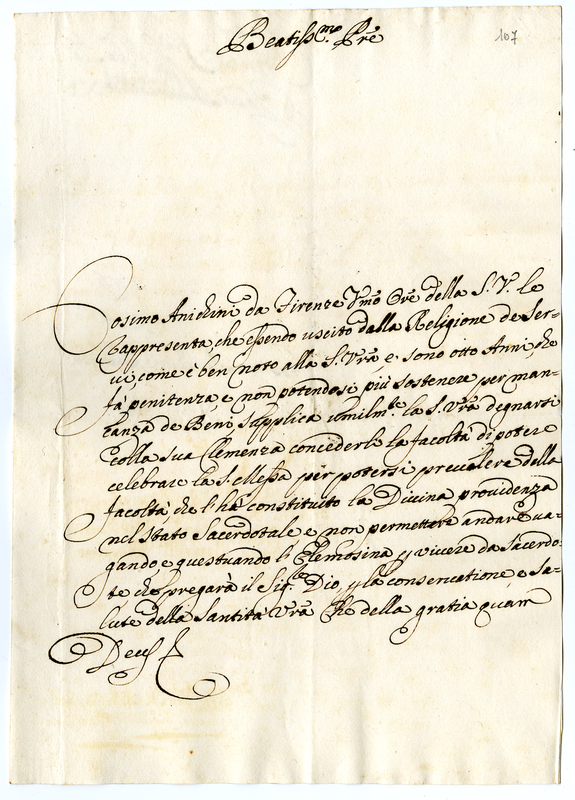 Beatiss.mo Pre
107
Cosimo Anichini da Firenze Vmo Ore della S. V. le
rappresenta, che essendo uscito dalla Religione de Ser=
vi, come è ben noto alla S. Vra e sono otto Anni, che
fà penitenza, e non potendosi più sostenere per man=
canza de Beni, supplica umilm.te la S. Vra degnarsi
colla sua Clemenza concederle la facoltà di potere
celebrare la S. Messa per potersi prevalere dalla
facoltà che l'hà constituito la Divina providenza
nel stato Sacerdotale e non permettere andare va=
gando e questuando l'Elemosina p vivere da Sacerdo=
te che pregarà il Sig.r Dio, p la conservatione e sa=
lute della Santità Vra Che della gratia quam
Deus